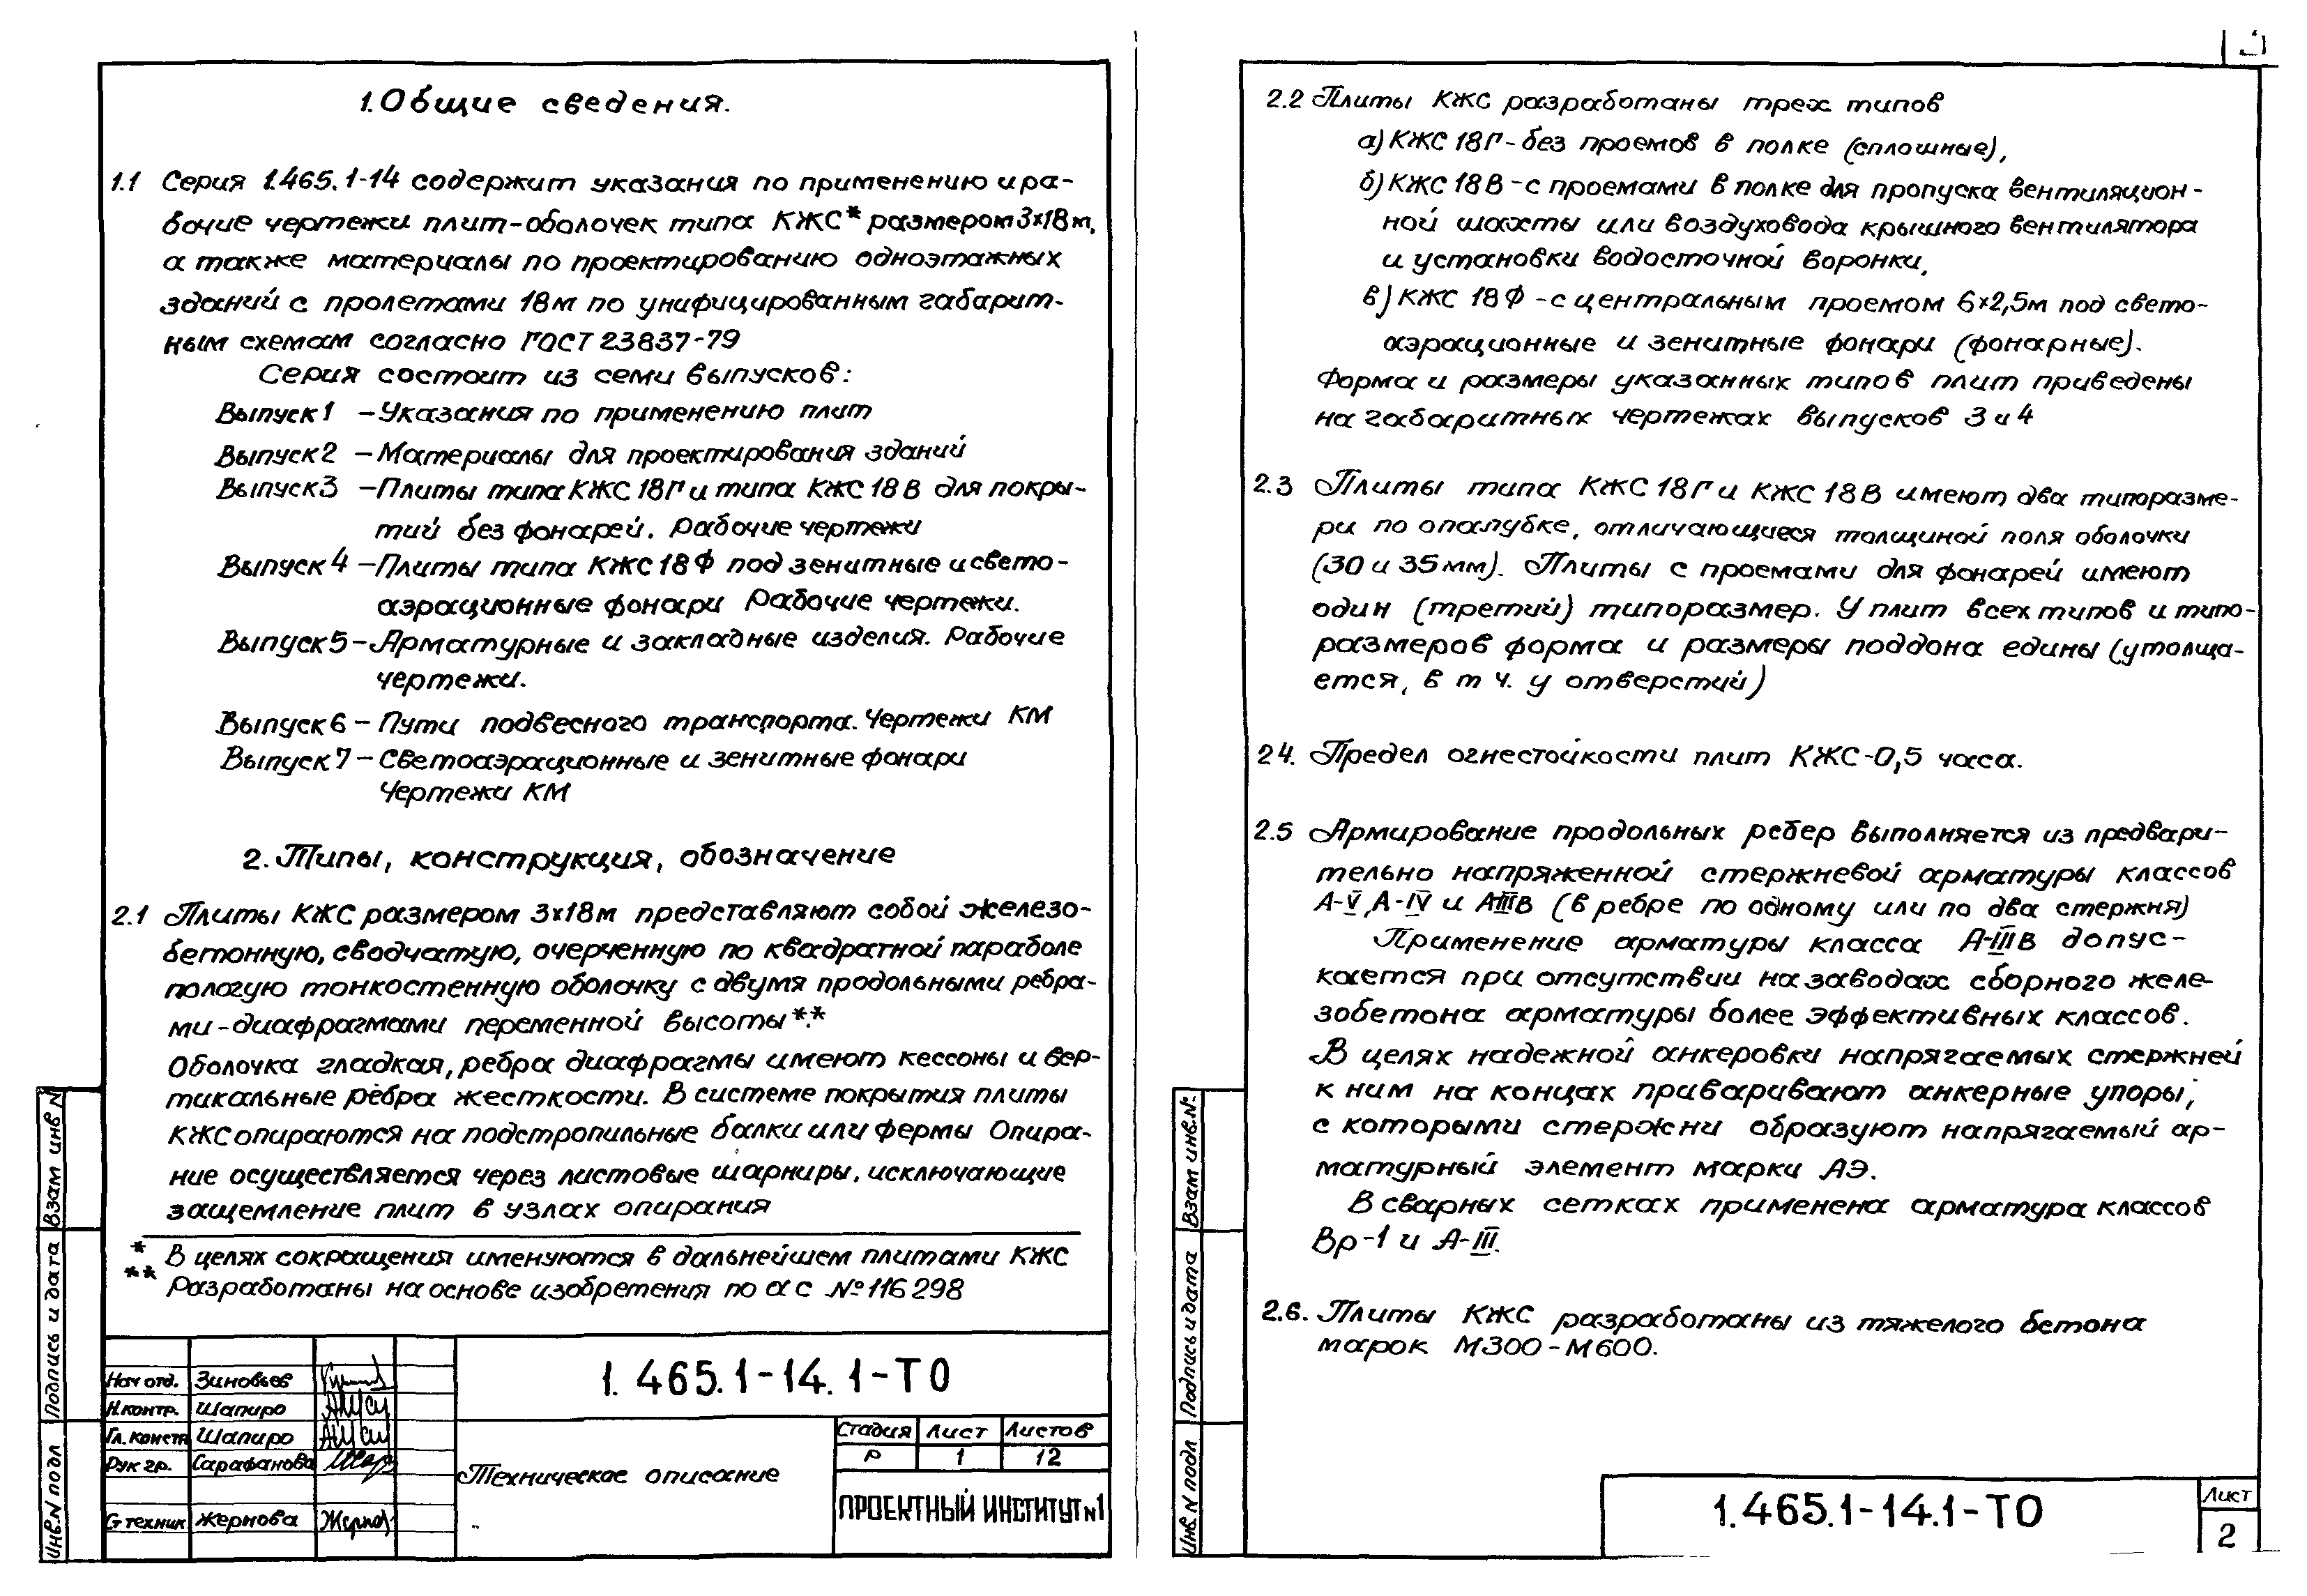 1. Общие сведения.
1.1 Серия 1.465.1-14 содержит указания по применению и ра-
бочие чертежи плит-оболочек типа КЖС* размером 3×18м,
а также материалы по проектированию одноэтажных
зданий с пролетами 18м по унифицированным габарит-
ным схемам согласно ГОСТ 23837-79
Серия состоит из семи выпусков:
Выпуск 1 – Указания по применению плит
Выпуск 2 – Материалы для проектирования зданий
Выпуск 3 – Плиты типа КЖС 18Г и типа КЖС 18В для покры-
тий без фонарей. Рабочие чертежи
Выпуск 4 – Плиты типа КЖС 18Ф под зенитные и свето-
аэрационные фонари Рабочие чертежи.
Выпуск 5 – Арматурные и закладные изделия. Рабочие
чертежи.
Выпуск 6 – Пути подвесного транспорта. Чертежи КМ
Выпуск 7 – Светоаэрационные и зенитные фонари
Чертежи КМ
2. Типы, конструкция, обозначение
2.1 Плиты КЖС размером 3х18м представляют собой железо-
бетонную, сводчатую, очерченную по квадратной параболе
пологую тонкостенную оболочку с двумя продольными ребра-
ми-диафрагмами переменной высоты**.
Оболочка гладкая, ребра диафрагмы имеют кессоны и вер-
тикальные ребра жесткости. В системе покрытия плиты
КЖС опираются на подстропильные балки или фермы Опира-
ние осуществляется через листовые шарниры, исключающие
защемление плит в узлах опирания
* В целях сокращения именуются в дальнейшем плитами КЖС
** Разработаны на основе изобретения по а с № 116 298
Взам инв N
Подпись и дата
Инв.N подл
Нач отд. Зиновьев
Н.контр. Шапиро
Гл. констр Шапиро
Рук гр. Сарафанова
Ст техник Жернова
1. 465.1-14. 1-ТО
Техническое описание
Стадия Лист Листов
Р 1 12
ПРОЕКТНЫЙ ИНСТИТУТ №1
2.2 Плиты КЖС разработаны трех типов
а) КЖС 18Г - без проемов в полке (сплошные),
б) КЖС 18В - с проемами в полке для пропуска вентиляцион-
ной шахты или воздуховода крышного вентилятора
и установки водосточной воронки,
в) КЖС 18Ф - с центральным проемом 6×2,5м под свето-
аэрационные и зенитные фонари (фонарные).
Форма и размеры указанных типов плит приведены
на габаритных чертежах выпусков 3 и 4
2.3 Плиты типа КЖС 18Г и КЖС 18В имеют два типоразме-
ри по опалубке, отличающиеся толщиной поля оболочки
(30 и 35мм). Плиты с проемами для фонарей имеют
один (третий) типоразмер. У плит всех типов и типо-
размеров форма и размеры поддона едины (утолща-
ется, в т ч. у отверстий)
2 4. Предел огнестойкости плит КЖС-0,5 часа.
2.5 Армирование продольных ребер выполняется из предвари-
тельно напряженной стержневой арматуры классов
А-V, А-IV и АIIIв (в ребре по одному или по два стержня)
Применение арматуры класса А-IIIв допус-
кается при отсутствии на заводах сборного желе-
зобетона арматуры более эффективных классов.
В целях надежной анкеровки напрягаемых стержней
к ним на концах приваривают анкерные упоры,
с которыми стержни образуют напрягаемый ар-
матурный элемент марки АЭ.
В сварных сетках применена арматура классов
Вр-1 и А-III.
2.6. Плиты КЖС разработаны из тяжелого бетона
марок М300-М600.
Взам инв.№
Подпись и дата
Инв N подл
1.465.1-14.1-ТО
Лист
2